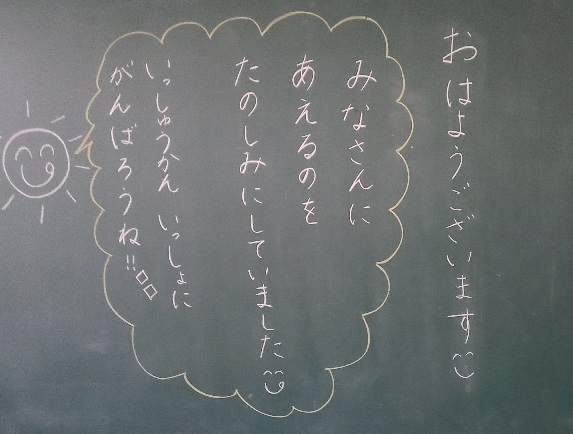 おはようございます
みなさんに
あえるのを
たのしみにしていました
いっしゅうかん いっしょに
がんばろうね!!